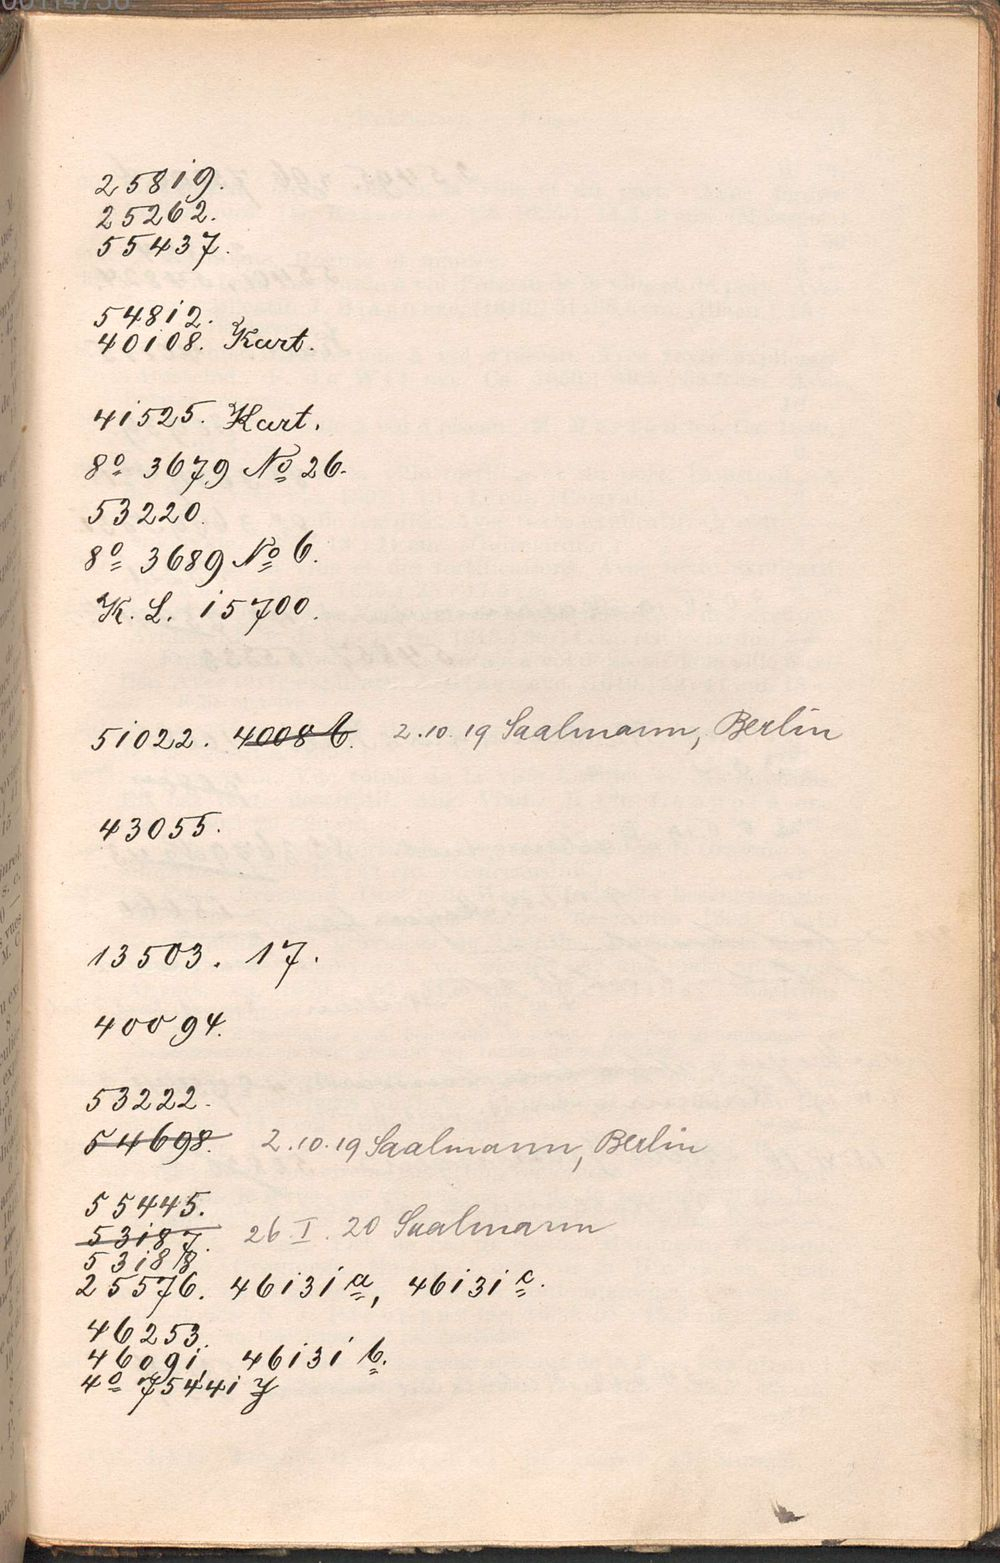 25819.
25262.
55437.
54812.
40108. Kart.
41525. Kart.
8º 3679 Nº 26.
53220.
8º 3689 Nº 6.
K. L. 15700.
51022. 4008 b. 2.10.19 Saalmann, Berlin
43055.
13503. 17.
40094.
53222.
54698. 2.10.19 Saalmann, Berlin
55445.
53187. 26.I.20 Saalmann
53188
25576. 46131 a, 46131 c.
46253.
46091, 46131 b.
4º 75441 y